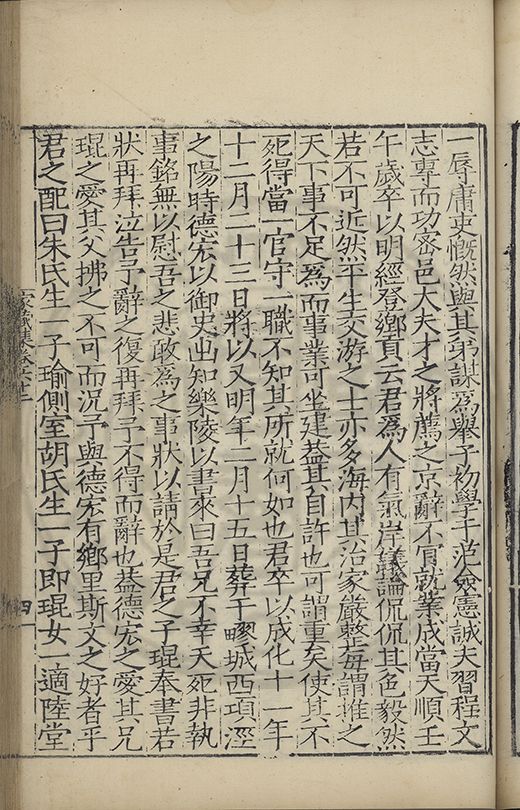 一辱庸吏慨然與其弟謀為舉子初學于范僉憲誠夫習程文
志專而功密邑大夫才之將薦之京辭不肎就業成當天順壬
午歲卒以明經登鄉貢云君為人有氣岸議論侃侃其色毅然
若不可近然平生交游之士亦多海内其治家嚴整每謂推之
天下事不足為而事業可坐建益其自許也可謂重矣使其不
死得當一官守一職不知其所就何如也君卒以成化十一年
十二月二十三日將以又明年二月十五日葬于城西項涇
之陽時德宏以御史出知樂陵以書來曰吾兄不幸夭死非執
事銘無以慰吾之悲敢為之事狀以請於是君之子琨奉書若
狀再拜泣告予辭之復再拜予不得而辭也葢德宏之愛其兄
琨之愛其父拂之不可而況予與德宏有鄉里斯文之好者乎
君之配曰朱氏生一子瑜側室胡氏生一子即琨女一適陸堂
家藏集卷六十三
四